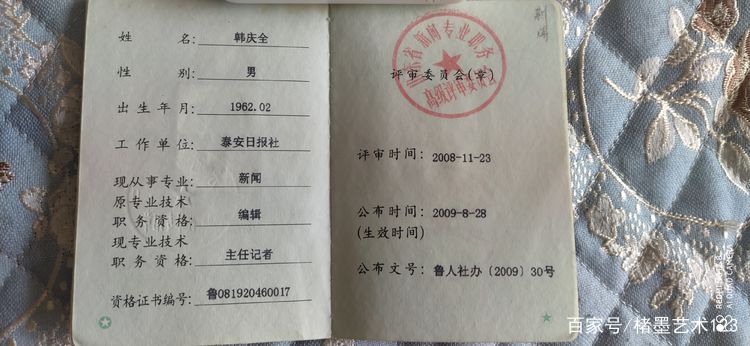 姓名: 韩庆全
性别: 男
出生年月: 1962.02
工作单位: 泰安日报社
现从事专业: 新闻
原专业技术
职务资格: 编辑
现专业技术
职务资格: 主任记者
资格证书编号: 鲁081920460017
山东省新闻专业职务
高级评审委员会
评审委员会(章)
评审时间: 2008-11-23
公布时间: 2009-8-28
(生效时间)
公布文号: 鲁人社办〔2009〕30号
百家号/楮墨艺术123